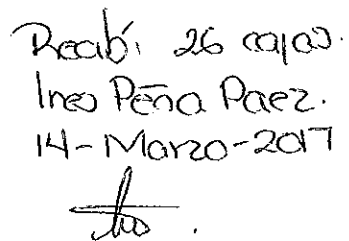 Recibí 26 cajas.
Ines Peña Paez.
14-Marzo-2017